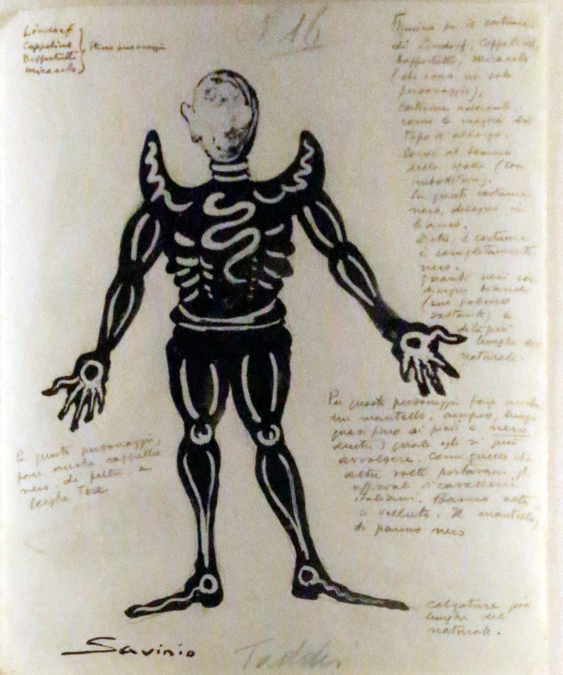 Lindorf
Coppelius
Dappertutto
Miracolo
stesso personaggio
16
Figurino per il costume
di Lindorf, Coppelius,
Dappertutto, Miracolo
(che sono un solo
personaggio).
Costume aderente
come la maglia dei
topi d'albergo.
Corni al termine
delle spalle (con
imbottitura).
Su questo costume
nero, disegni in
bianco.
Dietro, il costume
è completamente
nero.
Guanti neri con
disegni bianchi
(sul palmo
) e
dita più
lunghe del
naturale.
Per questo personaggio, fare anche
un mantello, ampio, lungo
quasi fino ai piedi e nero
dentro il quale egli si può
avvolgere. Come quello che
altre volte portavano gli
ufficiali di cavalleria
italiani. Bavero alto
di velluto. Il mantello,
di panno nero
Per questo personaggio,
fare anche cappello
nero di feltro a
larghe tese
calzature più
lunghe del
naturale.
Savinio
Taddei